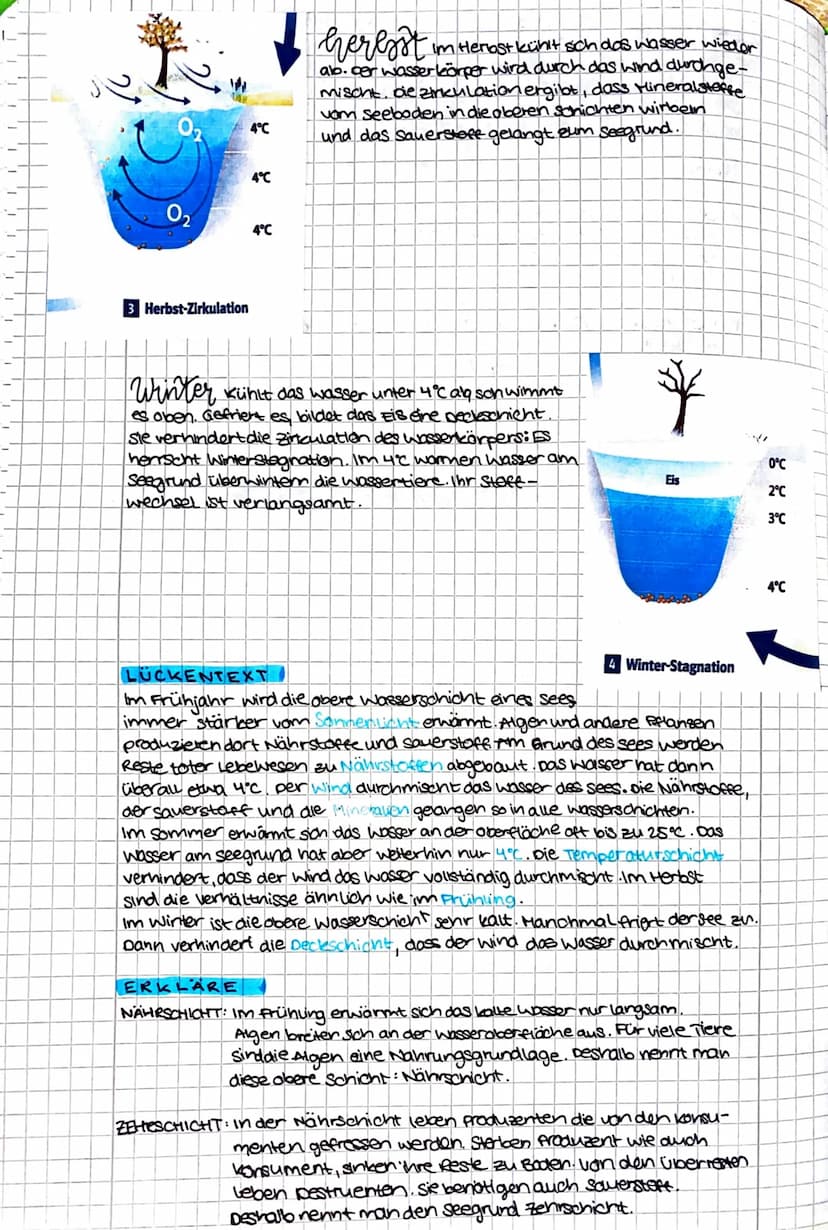 Herbst Im Herbst kühlt sich das Wasser wieder
ab. Der Wasserkörper wird durch das Wind durchge-
mischt. Die Zirkulation ergibt, dass Mineralstoffe
vom Seeboden in die oberen Schichten wirbeln
und das Sauerstoff gelangt zum Seegrund.
O2
4°C
4°C
O2
4°C
3 Herbst-Zirkulation
Winter kühlt das Wasser unter 4°C ab, schwimmt
es oben. Gefriert es, bildet das Eis eine Deckschicht.
Sie verhindert die Zirkulation des Wasserkörpers: Es
herrscht Winterstagnation. Im 4°C warmen Wasser am
Seegrund überwintern die Wassertiere. Ihr Stoff-
wechsel ist verlangsamt.
0°C
Eis
2°C
3°C
4°C
4 Winter-Stagnation
LÜCKENTEXT
Im Frühjahr wird die obere Wasserschicht eines Sees
immer stärker vom Sonnenlicht erwärmt. Algen und andere Pflanzen
produzieren dort Nährstoffe und Sauerstoff. Am Grund des Sees werden
Reste toter Lebewesen zu Nährstoffen abgebaut. Das Wasser hat dann
überall etwa 4°C. Der Wind durchmischt das Wasser des Sees. Die Nährstoffe,
der Sauerstoff und die Mineralien gelangen so in alle Wasserschichten.
Im Sommer erwärmt sich das Wasser an der Oberfläche oft bis zu 25°C. Das
Wasser am Seegrund hat aber weiterhin nur 4°C. Die Temperaturschicht
verhindert, dass der Wind das Wasser vollständig durchmischt. Im Herbst
sind die Verhältnisse ähnlich wie im Frühling.
Im Winter ist die obere Wasserschicht sehr kalt. Manchmal friert der See zu.
Dann verhindert die Deckschicht, dass der Wind das Wasser durchmischt.
ERKLÄRE
NÄHRSCHICHT: Im Frühling erwärmt sich das kalte Wasser nur langsam.
Algen breiten sich an der Wasseroberfläche aus. Für viele Tiere
sind die Algen eine Nahrungsgrundlage. Deshalb nennt man
diese obere Schicht: Nährschicht.
ZEHRSCHICHT: In der Nährschicht leben Produzenten die von den Konsu-
menten gefressen werden. Sterben Produzent wie auch
Konsument, sinken ihre Reste zu Boden. Von den Überresten
leben Destruenten. Sie benötigen auch Sauerstoff.
Deshalb nennt man den Seegrund Zehrschicht.